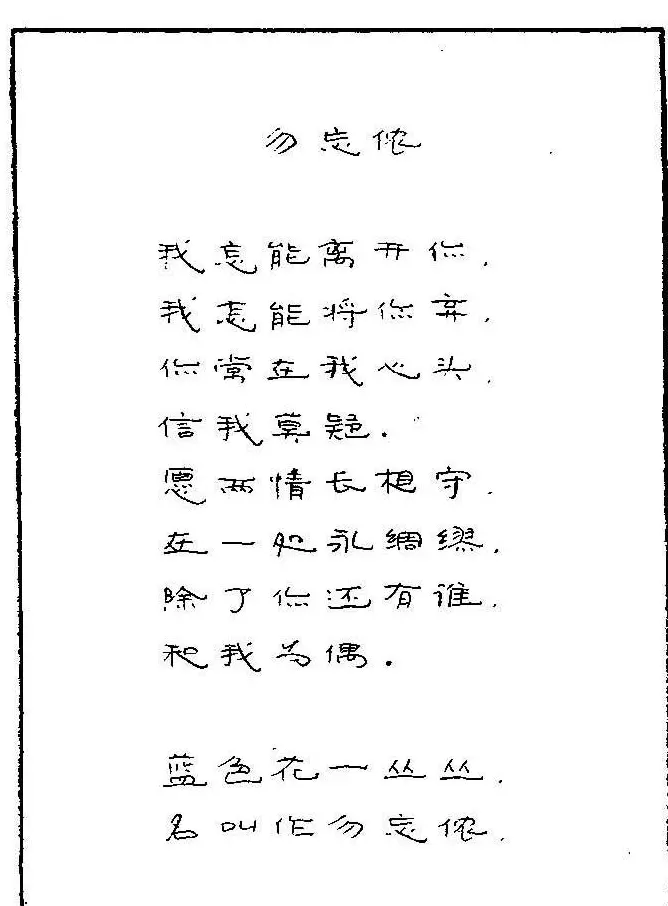 勿忘侬
我怎能离开你，
我怎能将你弃，
你常在我心头，
信我莫疑．
愿两情长相守，
在一处永绸缪，
除了你还有谁，
和我为偶．
蓝色花一丛丛，
名叫作勿忘侬，